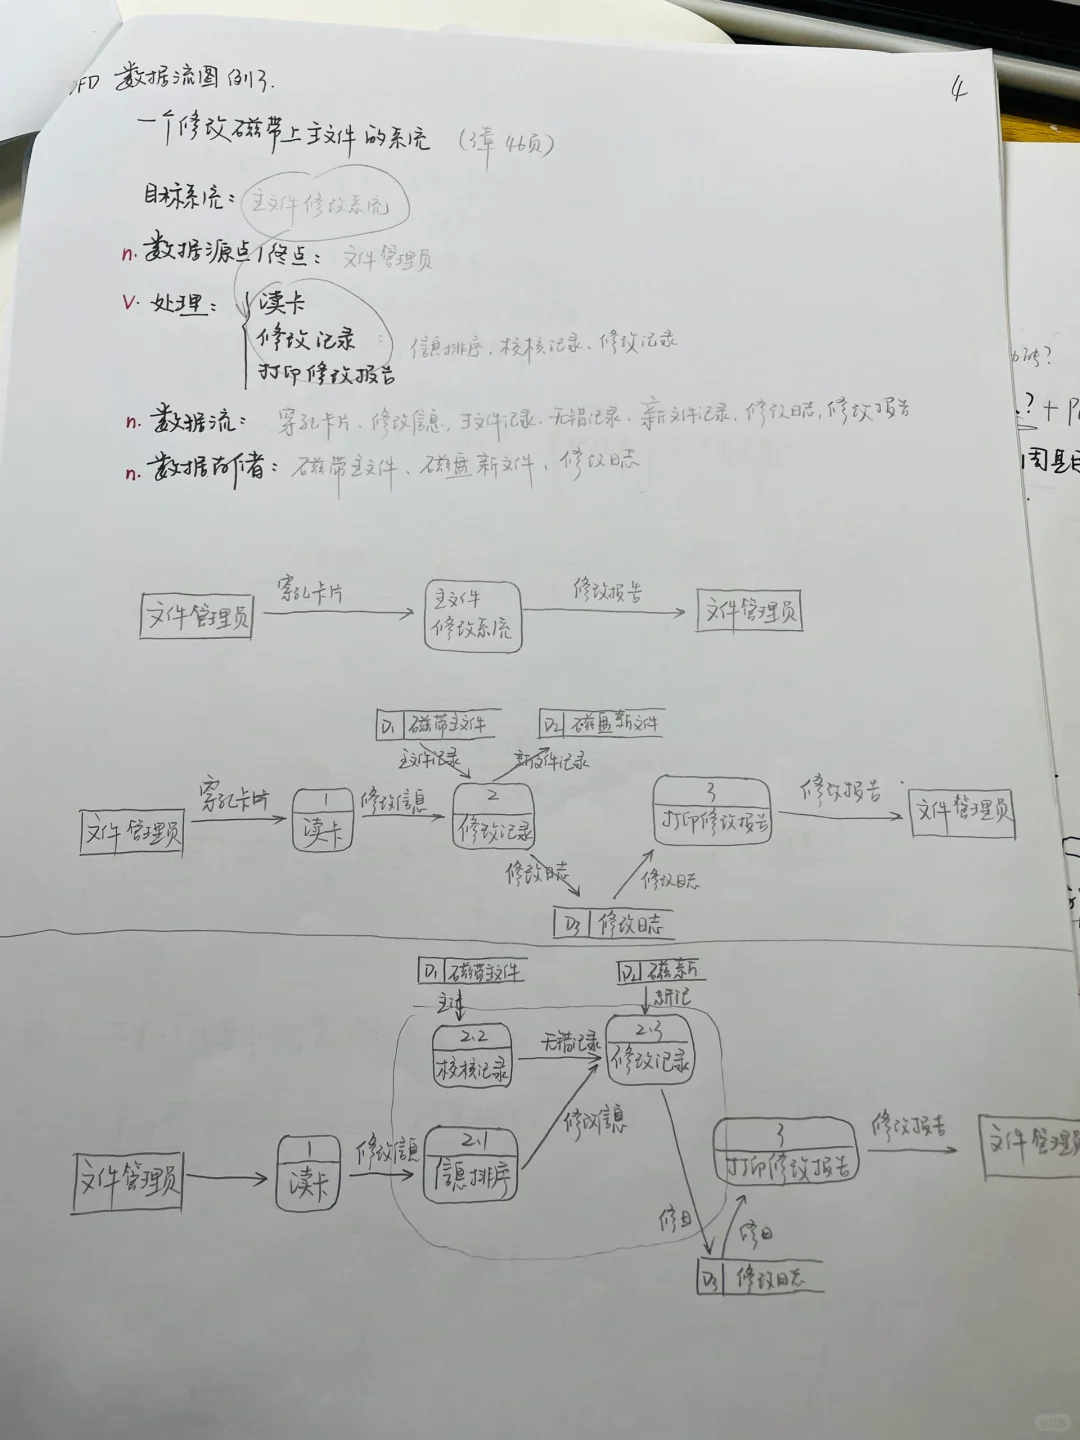 DFD 数据流图例3.
4
一个修改磁带上主文件的系统 (3章 46页)
目标系统: 主文件修改系统
n. 数据源点/终点: 文件管理员
V. 处理: 读卡
修改记录: 信息排序、校核记录、修改记录
打印修改报告
n. 数据流: 穿孔卡片、修改信息, 主文件记录、无错记录、新文件记录、修改日志, 修改报告
n. 数据存储者: 磁带主文件、磁盘新文件、修改日志
文件管理员 穿孔卡片 主文件 修改报告 文件管理员
修改系统
D1 磁带主文件 D2 磁盘新文件
主文件记录 新文件记录
文件管理员 穿孔卡片 1 读卡 修改信息 2 修改记录 3 打印修改报告 修改报告 文件管理员
修改日志 修改日志
D3 修改日志
D1 磁带主文件 D2 磁新
主记 新记
2.2 校核记录 无错记录 2.3 修改记录
修改信息
文件管理员 1 读卡 修改信息 2.1 信息排序 3 打印修改报告 修改报告 文件管理员
修日 修日
D3 修改日志